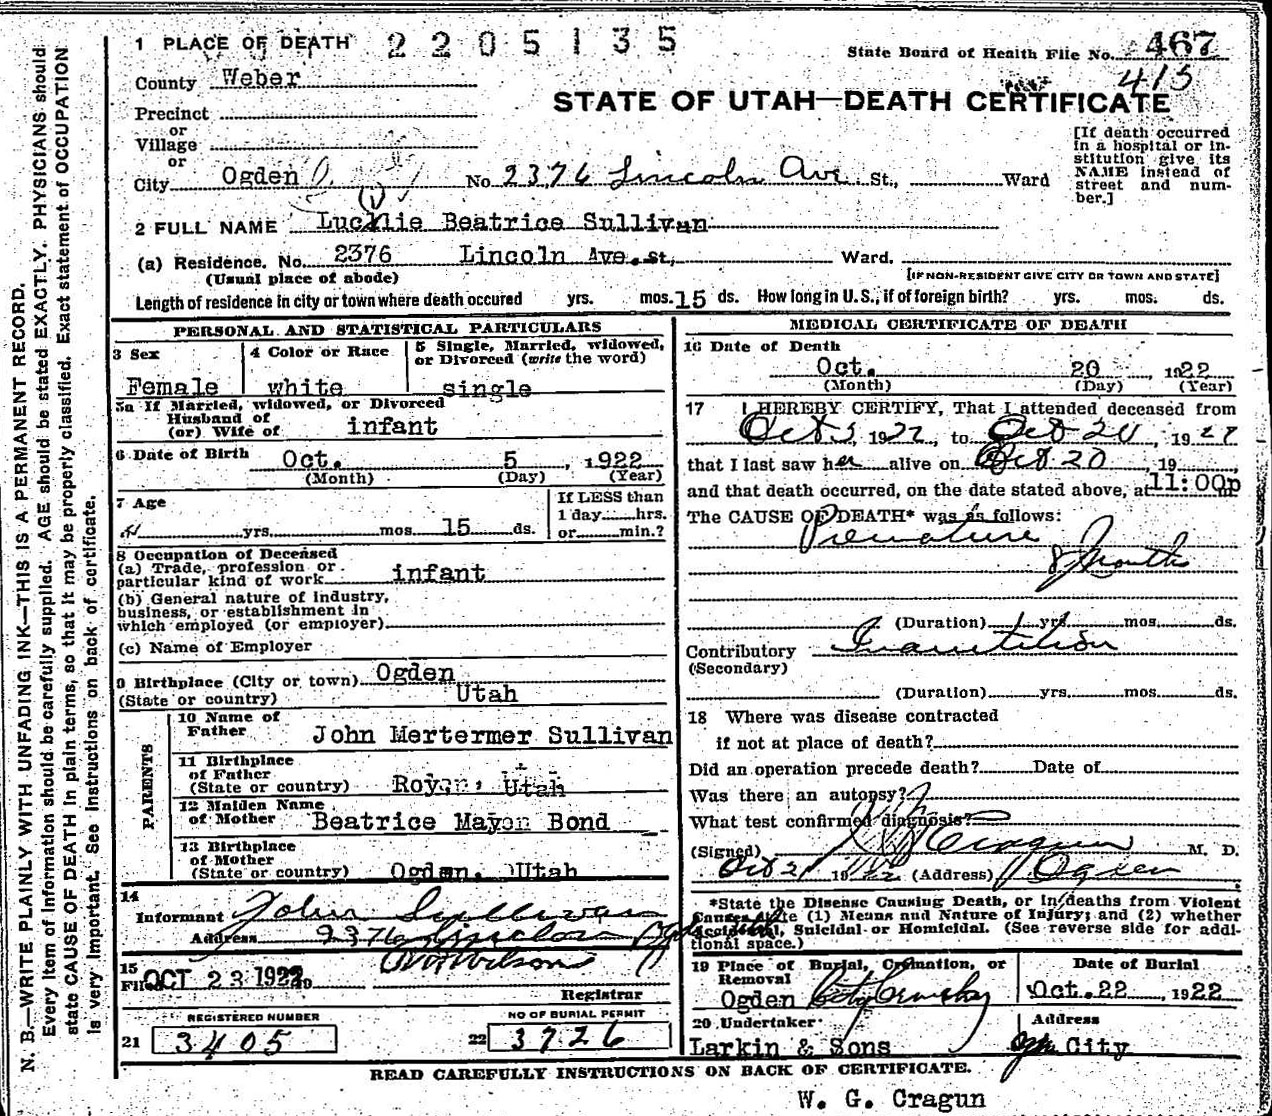 1 PLACE OF DEATH 2 2 0 5 1 3 5
State Board of Health File No. 467
415
County Weber
STATE OF UTAH—DEATH CERTIFICATE
Precinct
or
Village
or
City Ogden No 2376 Lincoln Ave. St., Ward
[If death occurred in a hospital or in-
stitution give its
NAME instead of
street and num-
ber.]
2 FULL NAME Lucklie Beatrice Sullivan
(a) Residence. No. 2376 Lincoln Ave. St., Ward.
(Usual place of abode) [IF NON-RESIDENT GIVE CITY OR TOWN AND STATE]
Length of residence in city or town where death occured yrs. mos. 15 ds. How long in U.S., if of foreign birth? yrs. mos. ds.
PERSONAL AND STATISTICAL PARTICULARS
3 Sex
Female
4 Color or Race
white
5 Single, Married, widowed,
or Divorced (write the word)
single
5a If Married, widowed, or Divorced
Husband of
(or) Wife of infant
6 Date of Birth Oct. 5, 1922
(Month) (Day) (Year)
7 Age
yrs. mos. 15 ds.
If LESS than
1 day hrs.
or min.?
8 Occupation of Deceased
(a) Trade, profession or
particular kind of work infant
(b) General nature of industry,
business, or establishment in
which employed (or employer)
(c) Name of Employer
9 Birthplace (City or town) Ogden
(State or country) Utah
PARENTS
10 Name of
Father John Mertermer Sullivan
11 Birthplace
of Father
(State or country) Roy, Utah
12 Maiden Name
of Mother Beatrice Mayon Bond
13 Birthplace
of Mother
(State or country) Ogden, Utah
14
Informant John Sullivan
Address 2376 Lincoln Ogden
15
Filed OCT 23 1922 Wilson
Registrar
REGISTERED NUMBER
21 3405
NO OF BURIAL PERMIT
22 3726
MEDICAL CERTIFICATE OF DEATH
16 Date of Death
Oct. 20, 1922
(Month) (Day) (Year)
17 I HEREBY CERTIFY, That I attended deceased from
Oct 5, 1922, to Oct 20, 1922
that I last saw her alive on Oct 20, 19
and that death occurred, on the date stated above, at 11:00p m
The CAUSE OF DEATH* was as follows:
Premature
8 Months
(Duration) yrs. mos. ds.
Contributory Inanition
(Secondary)
(Duration) yrs. mos. ds.
18 Where was disease contracted
if not at place of death?
Did an operation precede death? Date of
Was there an autopsy?
What test confirmed diagnosis?
(Signed) W G Cragun M. D.
Oct 21 1922 (Address) Ogden
*State the Disease Causing Death, or in deaths from Violent
Causes, state (1) Means and Nature of Injury; and (2) whether
Accidental, Suicidal or Homicidal. (See reverse side for addi-
tional space.)
19 Place of Burial, Cremation, or
Removal
Ogden City Cemetery
Date of Burial
Oct. 22, 1922
20 Undertaker
Larkin & Sons
Address
City
READ CAREFULLY INSTRUCTIONS ON BACK OF CERTIFICATE.
W. G. Cragun
N. B.—WRITE PLAINLY WITH UNFADING INK—THIS IS A PERMANENT RECORD.
Every item of information should be carefully supplied. AGE should be stated EXACTLY. PHYSICIANS should
state CAUSE OF DEATH in plain terms, so that it may be properly classified. Exact statement of OCCUPATION
is very important. See instructions on back of certificate.